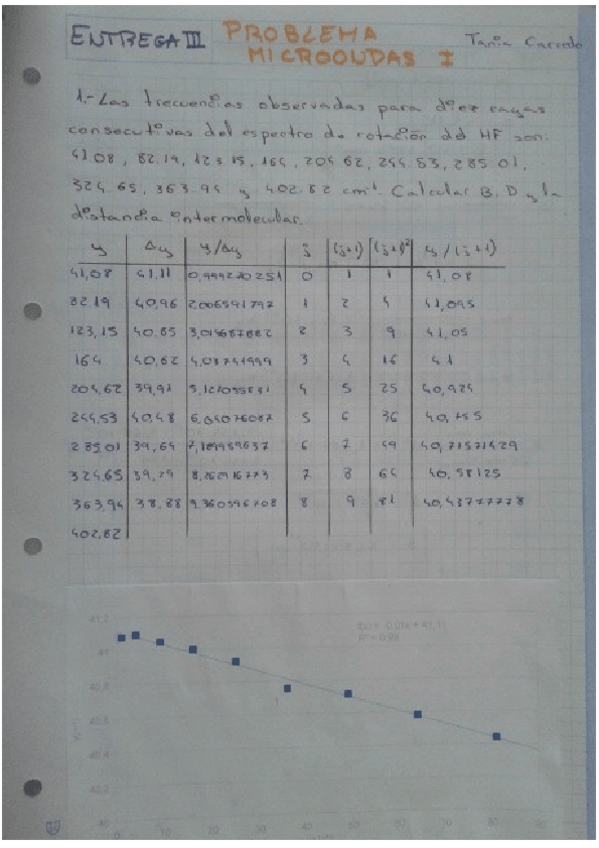 ENTREGA III PROBLEMA MICROONDAS I Tania
1.- Las frecuencias observadas para diez rayas
consecutivas del espectro de rotación del HF son:
41.08, 82.19, 123.15, 164, 204.62, 244.53, 285.01,
324.65, 363.94 y 402.82 cm⁻¹. Calcular B, D y la
distancia intermolecular.
y Δy y/Δy j (j+1) (j+1)² y/(j+1)
41,08 41,11 0,999270251 0 1 1 41,08
82.19 40,96 2,006591797 1 2 4 41,095
123,15 40,85 3 2 3 9 41,05
164 40,62 4 3 4 16 41
204,62 39,91 4 5 25 40,924
244,53 40,48 6,04076087 5 6 36 40,755
285.01 39,64 7,189959637 6 7 49 40,71571429
324,65 39,29 8 7 8 64 40,58125
363,94 38,88 9.360596708 8 9 81 40,43777778
402,82
41,2
41
40,8
40,6
40,4
40,2
40
0 10 20 30 40 50 60 70 80 90